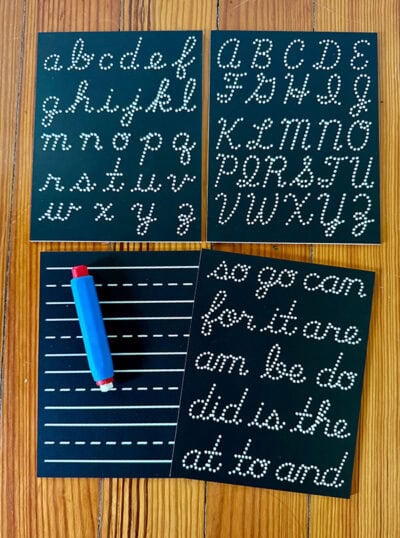 a b c d e f
g h i j k l
m n o p q
r s t u v
w x y z
A B C D E
F G H I J
K L M N O
P Q R S T U
V W X Y Z
so go can
for it are
am be do
did is the
at to and